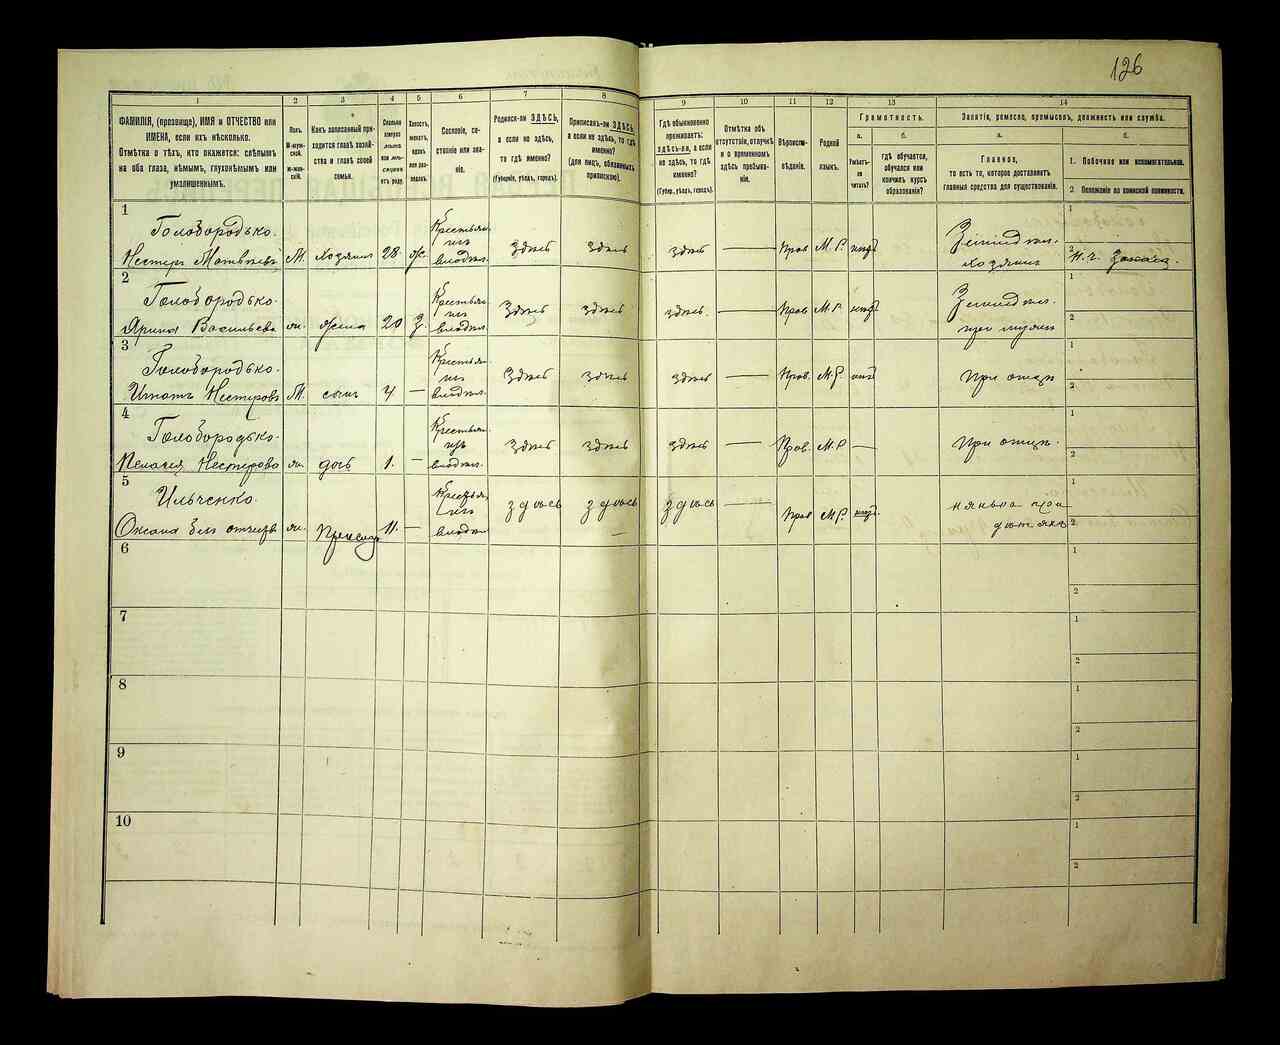 126
1 2 3 4 5 6 7 8 9 10 11 12 13 14
ФАМИЛІЯ, (прозвище), ИМЯ и ОТЧЕСТВО или
ИМЕНА, если ихъ нѣсколько.
Отмѣтка о тѣхъ, кто окажется: слѣпымъ
на оба глаза, нѣмымъ, глухонѣмымъ или
умалишеннымъ.
Полъ.
М-мужской.
Ж-женскій.
Какъ записанный приходится
главѣ хозяйства
и главѣ своей
семьи.
Сколько
минуло
лѣтъ
или мѣсяцевъ
отъ роду.
Холостъ,
женатъ,
вдовъ
или разведенъ.
Сословіе, состояніе
или званіе.
Родился-ли ЗДѢСЬ,
а если не здѣсь,
то гдѣ именно?
(Губернія, уѣздъ, городъ).
Приписанъ-ли ЗДѢСЬ,
а если не здѣсь, то гдѣ
именно?
(для лицъ, обязанныхъ
припискою).
Гдѣ обыкновенно
проживаетъ:
здѣсь-ли, а если
не здѣсь, то гдѣ
именно?
(Губер., уѣздъ, городъ).
Отмѣтка объ
отсутствіи, отлучкѣ
и о временномъ
здѣсь пребываніи.
Вѣроисповѣданіе.
Родной
языкъ.
Грамотность.
а. б.
Умѣетъ-ли
читать?
гдѣ обучается,
обучался или
кончилъ курсъ
образованія?
Занятіе, ремесло, промыселъ, должность или служба.
а. б.
Главное,
то есть то, которое доставляетъ
главныя средства для существованія.
1. Побочное или вспомогательное.
2. Положеніе по воинской повинности.
1
Голобородько.
Нестеръ Матвѣевъ М. хозяинъ 28 ж. Крестьян. изъ владѣл. здѣсь здѣсь здѣсь — Прав М.Р. нѣтъ Земледѣл. хозяинъ
1
2
2
Голобородько.
Ярина Васильева ж. жена 20 З. Крестьян. изъ владѣл. здѣсь здѣсь здѣсь. — Прав М.Р. нѣтъ Земледѣл. при мужѣ
1
2
3
Голобородько.
Игнатъ Нестеровъ М. сынъ 4 — Крестьян. изъ владѣл. здѣсь здѣсь здѣсь — Прав. М.Р. нѣтъ При отцѣ
1
2
4
Голобородько.
Пелагея Нестерова ж. дочь 1. — Крестьян. изъ владѣл. здѣсь здѣсь здѣсь — Прав. М.Р — При отцѣ.
1
2
5
Ильченко.
Оксана безъ отчества ж. 11. — Крестьян. изъ владѣл здѣсь здѣсь здѣсь — Прав М.Р. нѣтъ нянька при дѣтяхъ
1
2
6
1
2
7
1
2
8
1
2
9
1
2
10
1
2